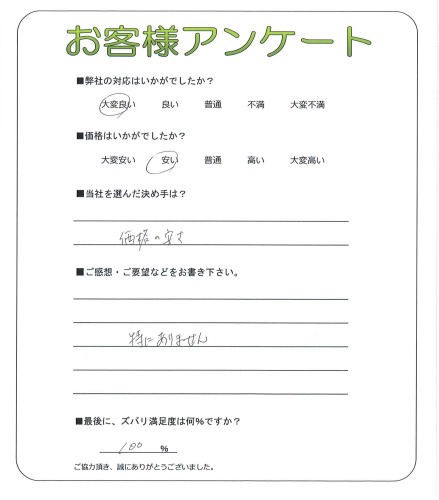 お客様アンケート
■弊社の対応はいかがでしたか？
大変良い 良い 普通 不満 大変不満
■価格はいかがでしたか？
大変安い 安い 普通 高い 大変高い
■当社を選んだ決め手は？
価格の安さ
■ご感想・ご要望などをお書き下さい。
特にありません
■最後に、ズバリ満足度は何％ですか？
100 ％
ご協力頂き、誠にありがとうございました。